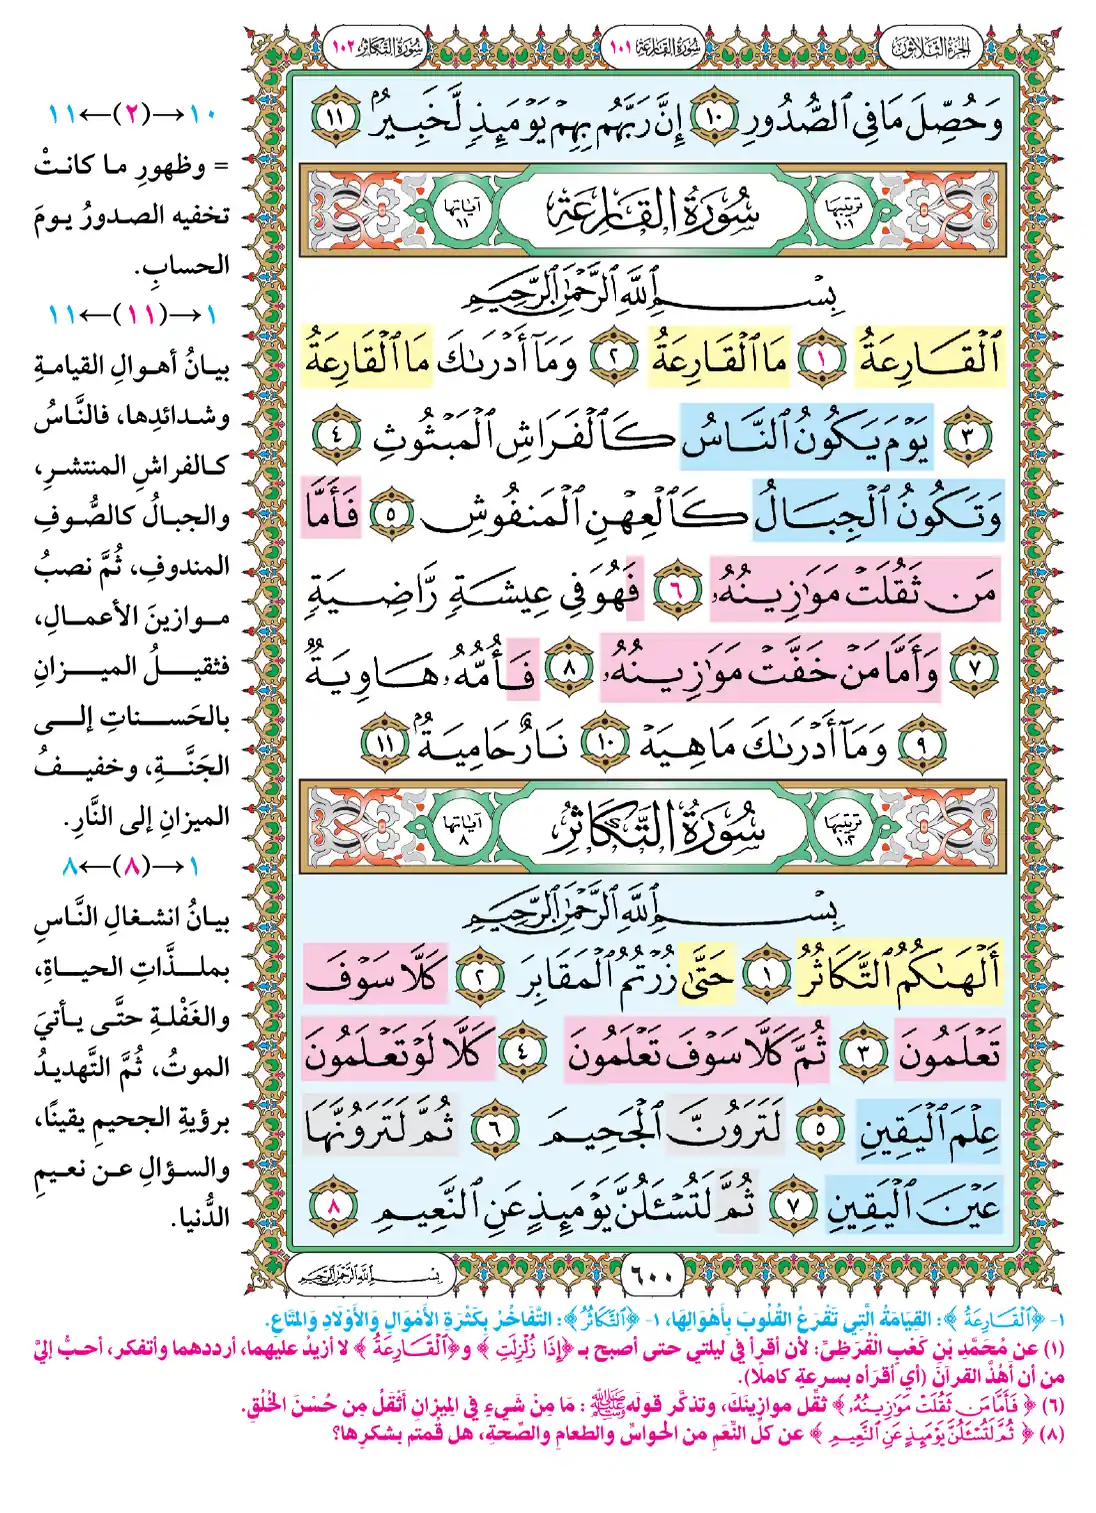 الجزء الثلاثون
سورة القارعة ١٠١
سورة التكاثر ١٠٢
وَحُصِّلَ مَا فِي ٱلصُّدُورِ ١٠ إِنَّ رَبَّهُم بِهِمۡ يَوۡمَئِذٖ لَّخَبِيرُۢ ١١
ترتيبها ١٠١ سُورَةُ القَارِعَةِ آياتها ١١
بِسۡمِ ٱللَّهِ ٱلرَّحۡمَٰنِ ٱلرَّحِيمِ
ٱلۡقَارِعَةُ ١ مَا ٱلۡقَارِعَةُ ٢ وَمَآ أَدۡرَىٰكَ مَا ٱلۡقَارِعَةُ
٣ يَوۡمَ يَكُونُ ٱلنَّاسُ كَٱلۡفَرَاشِ ٱلۡمَبۡثُوثِ ٤
وَتَكُونُ ٱلۡجِبَالُ كَٱلۡعِهۡنِ ٱلۡمَنفُوشِ ٥ فَأَمَّا
مَن ثَقُلَتۡ مَوَٰزِينُهُۥ ٦ فَهُوَ فِي عِيشَةٖ رَّاضِيَةٖ
٧ وَأَمَّا مَنۡ خَفَّتۡ مَوَٰزِينُهُۥ ٨ فَأُمُّهُۥ هَاوِيَةٞ
٩ وَمَآ أَدۡرَىٰكَ مَا هِيَهۡ ١٠ نَارٌ حَامِيَةُۢ ١١
ترتيبها ١٠٢ سُورَةُ التَّكَاثُرِ آياتها ٨
بِسۡمِ ٱللَّهِ ٱلرَّحۡمَٰنِ ٱلرَّحِيمِ
أَلۡهَىٰكُمُ ٱلتَّكَاثُرُ ١ حَتَّىٰ زُرۡتُمُ ٱلۡمَقَابِرَ ٢ كَلَّا سَوۡفَ
تَعۡلَمُونَ ٣ ثُمَّ كَلَّا سَوۡفَ تَعۡلَمُونَ ٤ كَلَّا لَوۡ تَعۡلَمُونَ
عِلۡمَ ٱلۡيَقِينِ ٥ لَتَرَوُنَّ ٱلۡجَحِيمَ ٦ ثُمَّ لَتَرَوُنَّهَا
عَيۡنَ ٱلۡيَقِينِ ٧ ثُمَّ لَتُسۡـَٔلُنَّ يَوۡمَئِذٍ عَنِ ٱلنَّعِيمِ ٨
٦٠٠
بِسۡمِ ٱللَّهِ ٱلرَّحۡمَٰنِ ٱلرَّحِيمِ
١٠→(٢)←١١
= وظهورِ ما كانتْ
تخفيه الصدورُ يومَ
الحسابِ.
١→(١١)←١١
بيانُ أهوالِ القيامةِ
وشدائدِها، فالنَّاسُ
كالفراشِ المنتشرِ،
والجبالُ كالصُّوفِ
المندوفِ، ثُمَّ نصبُ
موازينَ الأعمالِ،
فثقيلُ الميزانِ
بالحَسناتِ إلى
الجَنَّةِ، وخفيفُ
الميزانِ إلى النَّارِ.
١→(٨)←٨
بيانُ انشغالِ النَّاسِ
بملذَّاتِ الحياةِ،
والغَفْلةِ حتَّى يأتيَ
الموتُ، ثُمَّ التَّهديدُ
برؤيةِ الجحيمِ يقينًا،
والسؤالِ عن نعيمِ
الدُّنيا.
١- ﴿ٱلۡقَارِعَةُ﴾: القِيَامَةُ الَّتِي تَقْرَعُ القُلُوبَ بِأَهْوَالِهَا، ١- ﴿ٱلتَّكَاثُرُ﴾: التَّفَاخُرُ بِكَثْرَةِ الأَمْوَالِ وَالأَوْلَادِ وَالمَتَاعِ.
(١) عن مُحَمَّدِ بْنِ كَعْبٍ الْقُرَظِيِّ: لأن أقرأ في ليلتي حتى أصبح بـ ﴿إِذَا زُلۡزِلَتِ﴾ و﴿ٱلۡقَارِعَةُ﴾ لا أزيدُ عليهما، أرددهما وأتفكر، أحبُّ إليَّ
من أن أَهُذَّ القرآنَ (أي أقرَأه بسرعةٍ كاملًا).
(٦) ﴿فَأَمَّا مَن ثَقُلَتۡ مَوَٰزِينُهُۥ﴾ ثقِّل موازينَكَ، وتذكَّر قولَه ﷺ: مَا مِنْ شَيءٍ فِي المِيزانِ أَثْقَلُ مِن حُسْنَ الخُلُقِ.
(٨) ﴿ثُمَّ لَتُسۡـَٔلُنَّ يَوۡمَئِذٍ عَنِ ٱلنَّعِيمِ﴾ عن كلِّ النِّعَمِ من الحواسِّ والطعامِ والصِّحةِ، هل قُمتم بشكرِها؟